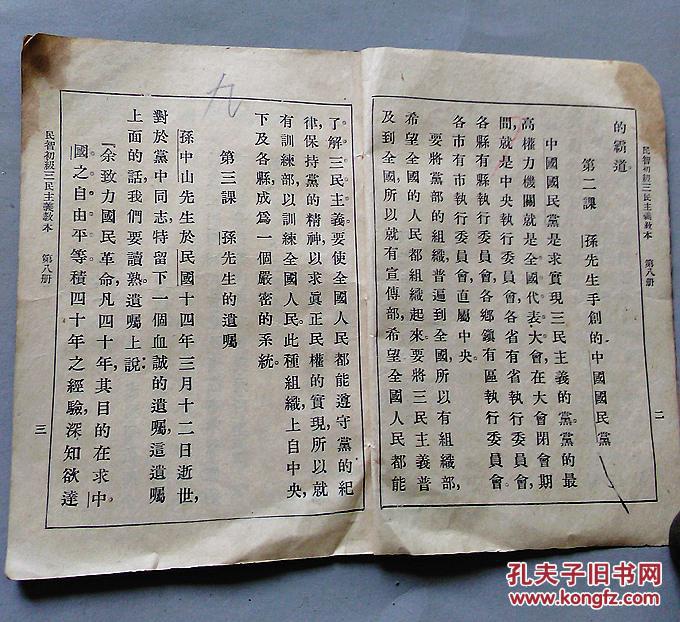 民智初級三民主義教本　第八册
二
的霸道
第二課　孫先生手創的中國國民黨
中國國民黨是求實現三民主義的黨。黨的最
高權力機關就是全國代表大會，在大會閉會期
間，就是中央執行委員會，各省有省執行委員會，
各縣有縣執行委員會，各鄉鎮有區執行委員會。
各市有市執行委員會，直屬中央。
要將黨部的組織普遍到全國，所以有組織部，
希望全國的人民都組織起來。要將三民主義普
及到全國，所以就有宣傳部，希望全國人民都能
九
了解三民主義。要使全國人民都能遵守黨的紀
律，保持黨的精神，以求眞正民權的實現，所以就
有訓練部，以訓練全國人民。此種組織，上自中央，
下及各縣，成爲一個嚴密的系統。
第三課　孫先生的遺囑
孫中山先生於民國十四年三月十二日逝世，
對於黨中同志特留下一個血誠的遺囑，這遺囑
上面的話，我們要讀熟，遺囑上說：
「余致力國民革命，凡四十年，其目的在求中
國之自由平等。積四十年之經驗，深知欲達
民智初級三民主義教本　第八册
三
孔夫子旧书网
kongfz.com